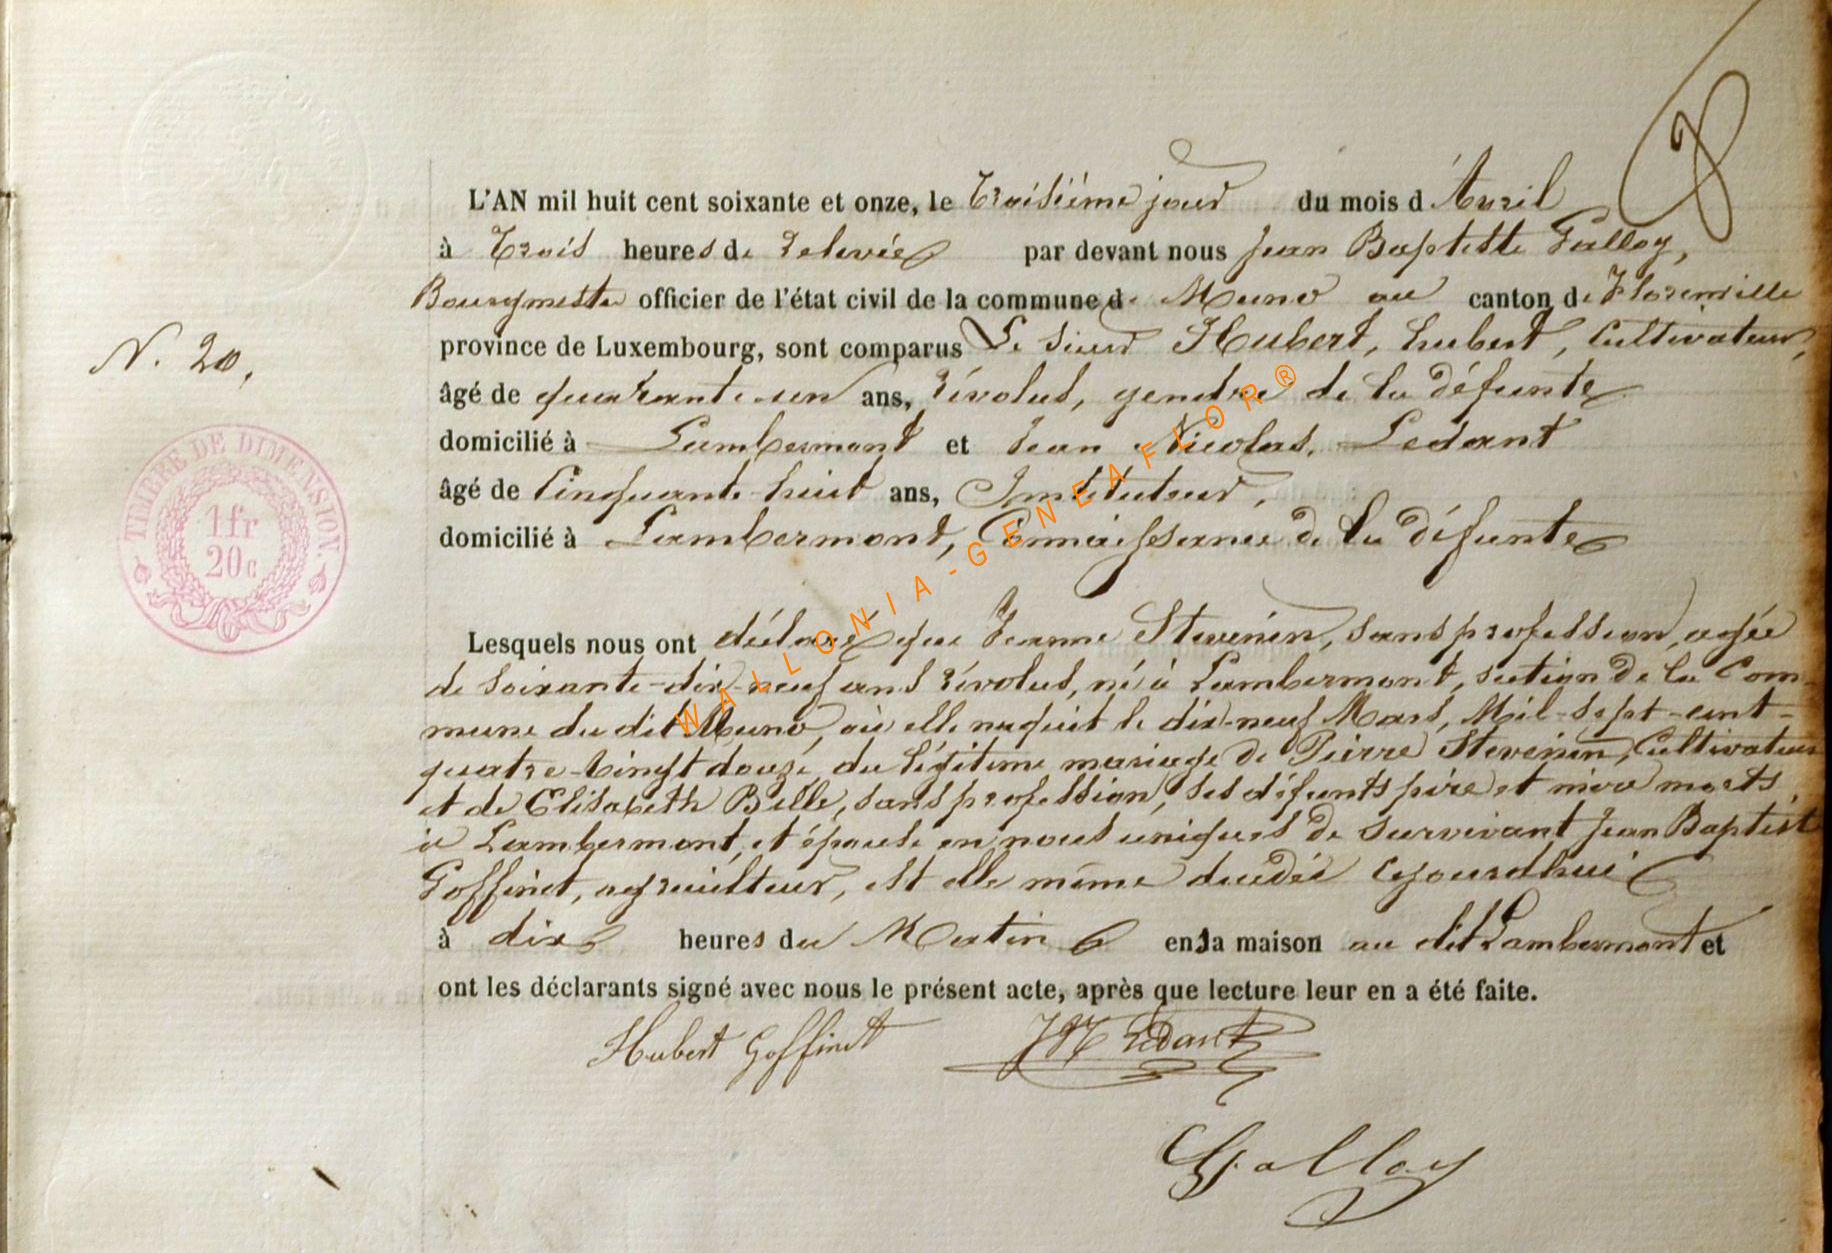 L'AN mil huit cent soixante et onze, le troisième jour du mois d'Avril
à trois heures de relevée par devant nous Jean Baptiste Galloy,
Bourgmestre officier de l'état civil de la commune de Muno au canton de Florenville
N. 20, province de Luxembourg, sont comparus Le sieur Hubert, hubert, Cultivateur,
âgé de quarante-un ans, révolus, gendre de la défunte
domicilié à Lambermont et Jean Nicolas Ledant
âgé de Cinquante-huit ans, Instituteur,
domicilié à Lambermont, Connaissance de la défunte
TIMBRE DE DIMENSION.
1 fr
20 c
Lesquels nous ont déclaré que Jeanne Stevenin, sans profession, agée
de soixante-dix-neuf ans révolus, né à Lambermont, section de la Com-
mune du dit Muno, où elle naquit le dix-neuf Mars, Mil-sept-cent-
quatre-vingt douze, du légitime mariage de Pierre Stevenin, Cultivateur
et de Elisabeth Bille, sans profession, ses défunts père et mère morts
à Lambermont, et épouse en uniques de survivant Jean Baptist
Goffinet, agriculteur, est elle même décédée cejourdhui
à dix heures du Matin en la maison au dit Lambermont et
ont les déclarants signé avec nous le présent acte, après que lecture leur en a été faite.
Hubert Goffinet JN Ledant
Galloy
WALLONIA-GENEAFLOR®